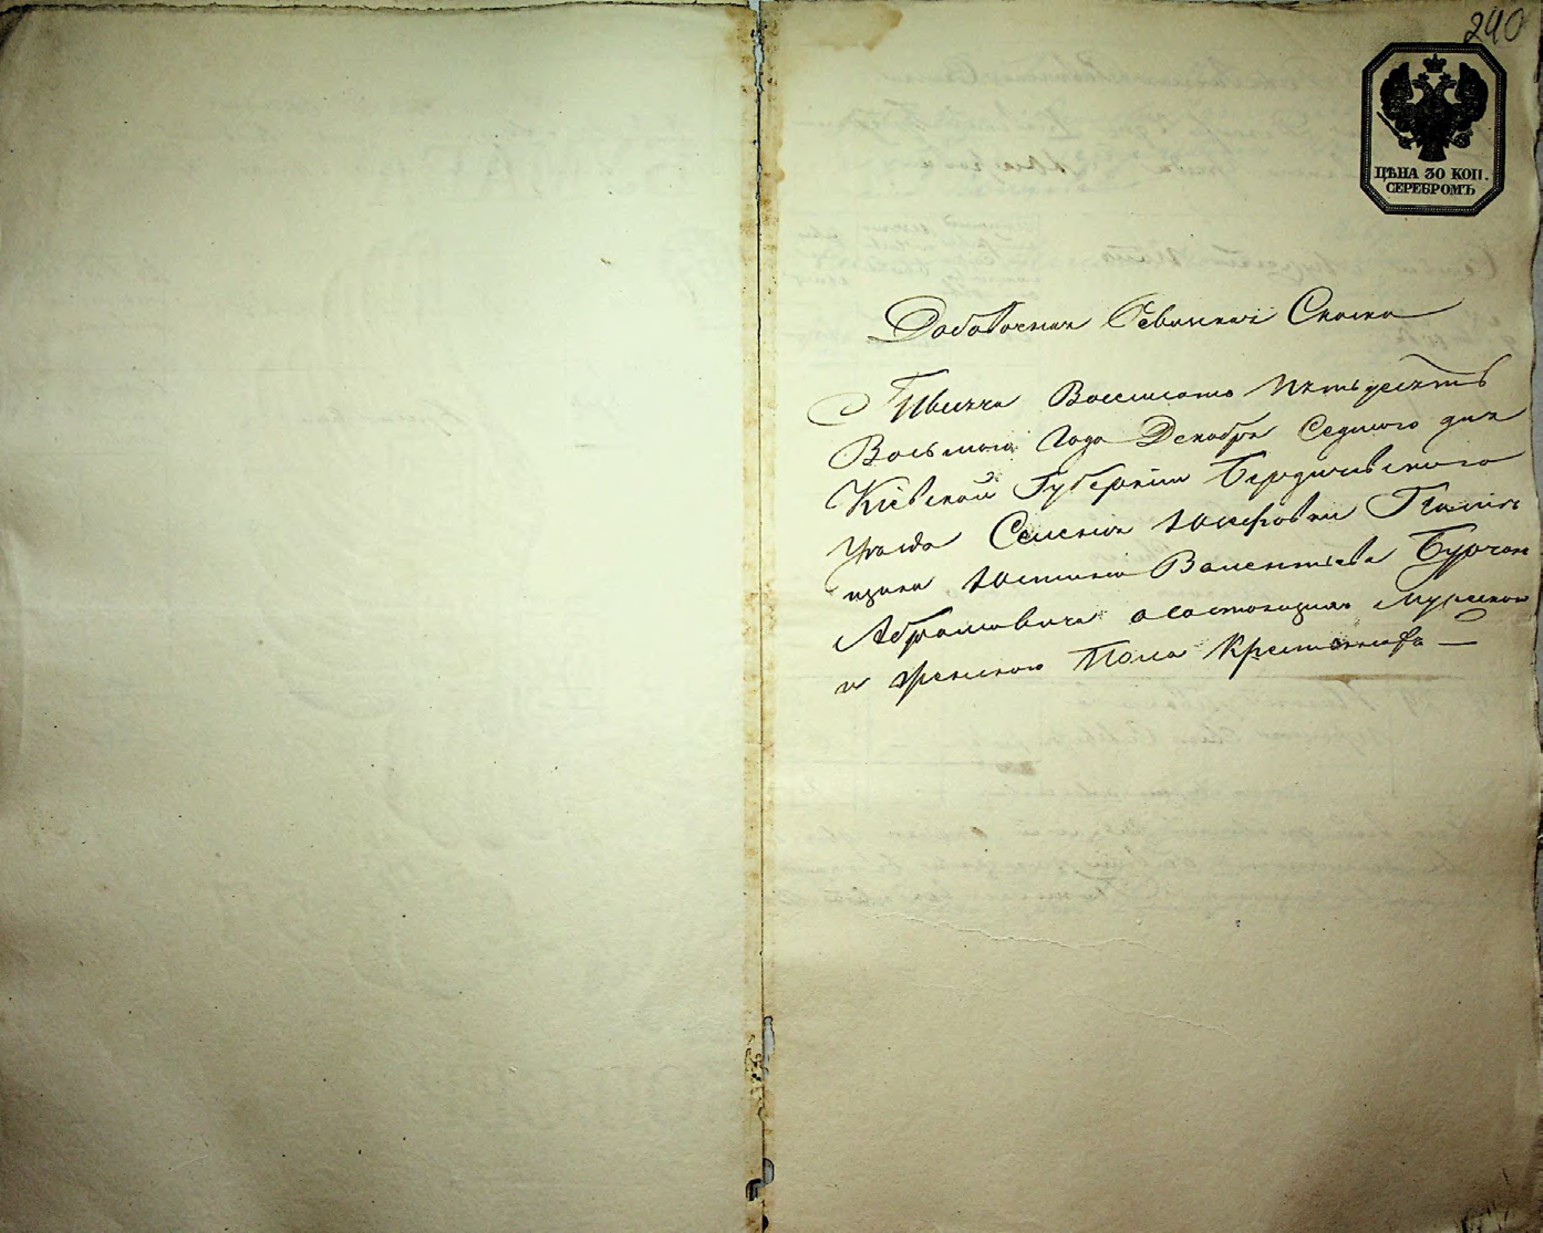 240
ЦѢНА 30 КОП.
СЕРЕБРОМЪ
Добавочная Ревизская Сказка
Тысяча Восемсотъ Пятьдесятъ
Восьмаго Года Декабря Седмого дня
Кіевской Губерніи Бердичевскаго
Уезда Селенія Юзефовки Помѣ-
щика Валентіева
Абрамовича о состоящихъ мужеска
и женскаго Пола Крестьянъ